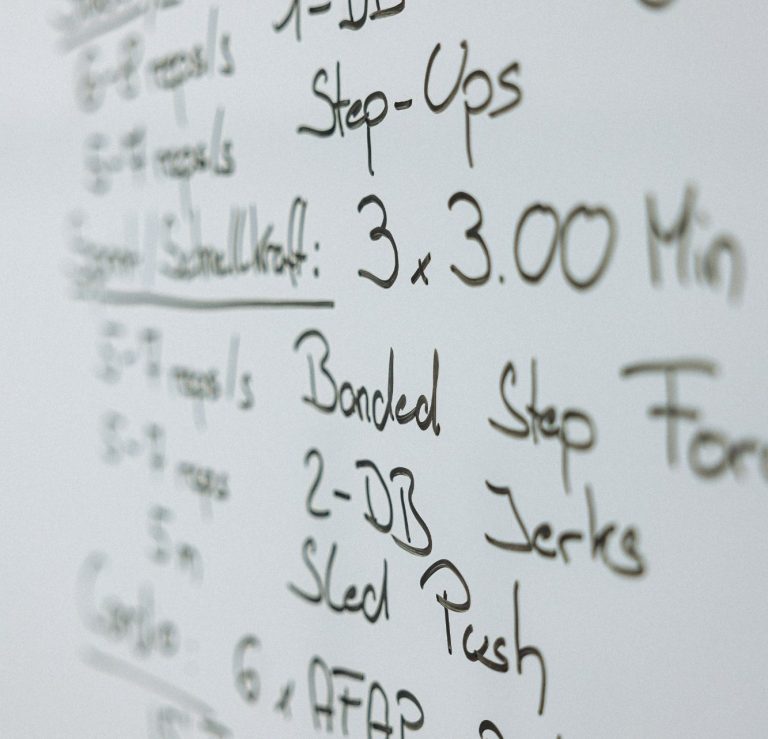 1-DB
6-8 reps/s Step-Ups
5-7 reps/s
Schnellkraft: 3 x 3.00 Min
5-7 reps/s Banded Step Forw
5-7 reps 2-DB Jerks
5m Sled Push
Cardio:
6 x AFAP